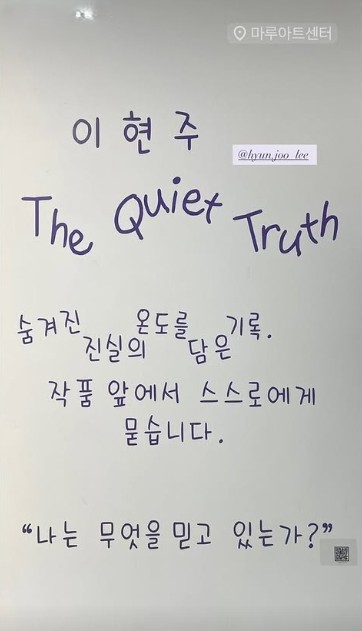 마루아트센터
이현주
@hyun.joo_lee
The Quiet Truth
숨겨진 진실의 온도를 담은 기록.
작품 앞에서 스스로에게
묻습니다.
“나는 무엇을 믿고 있는가?”